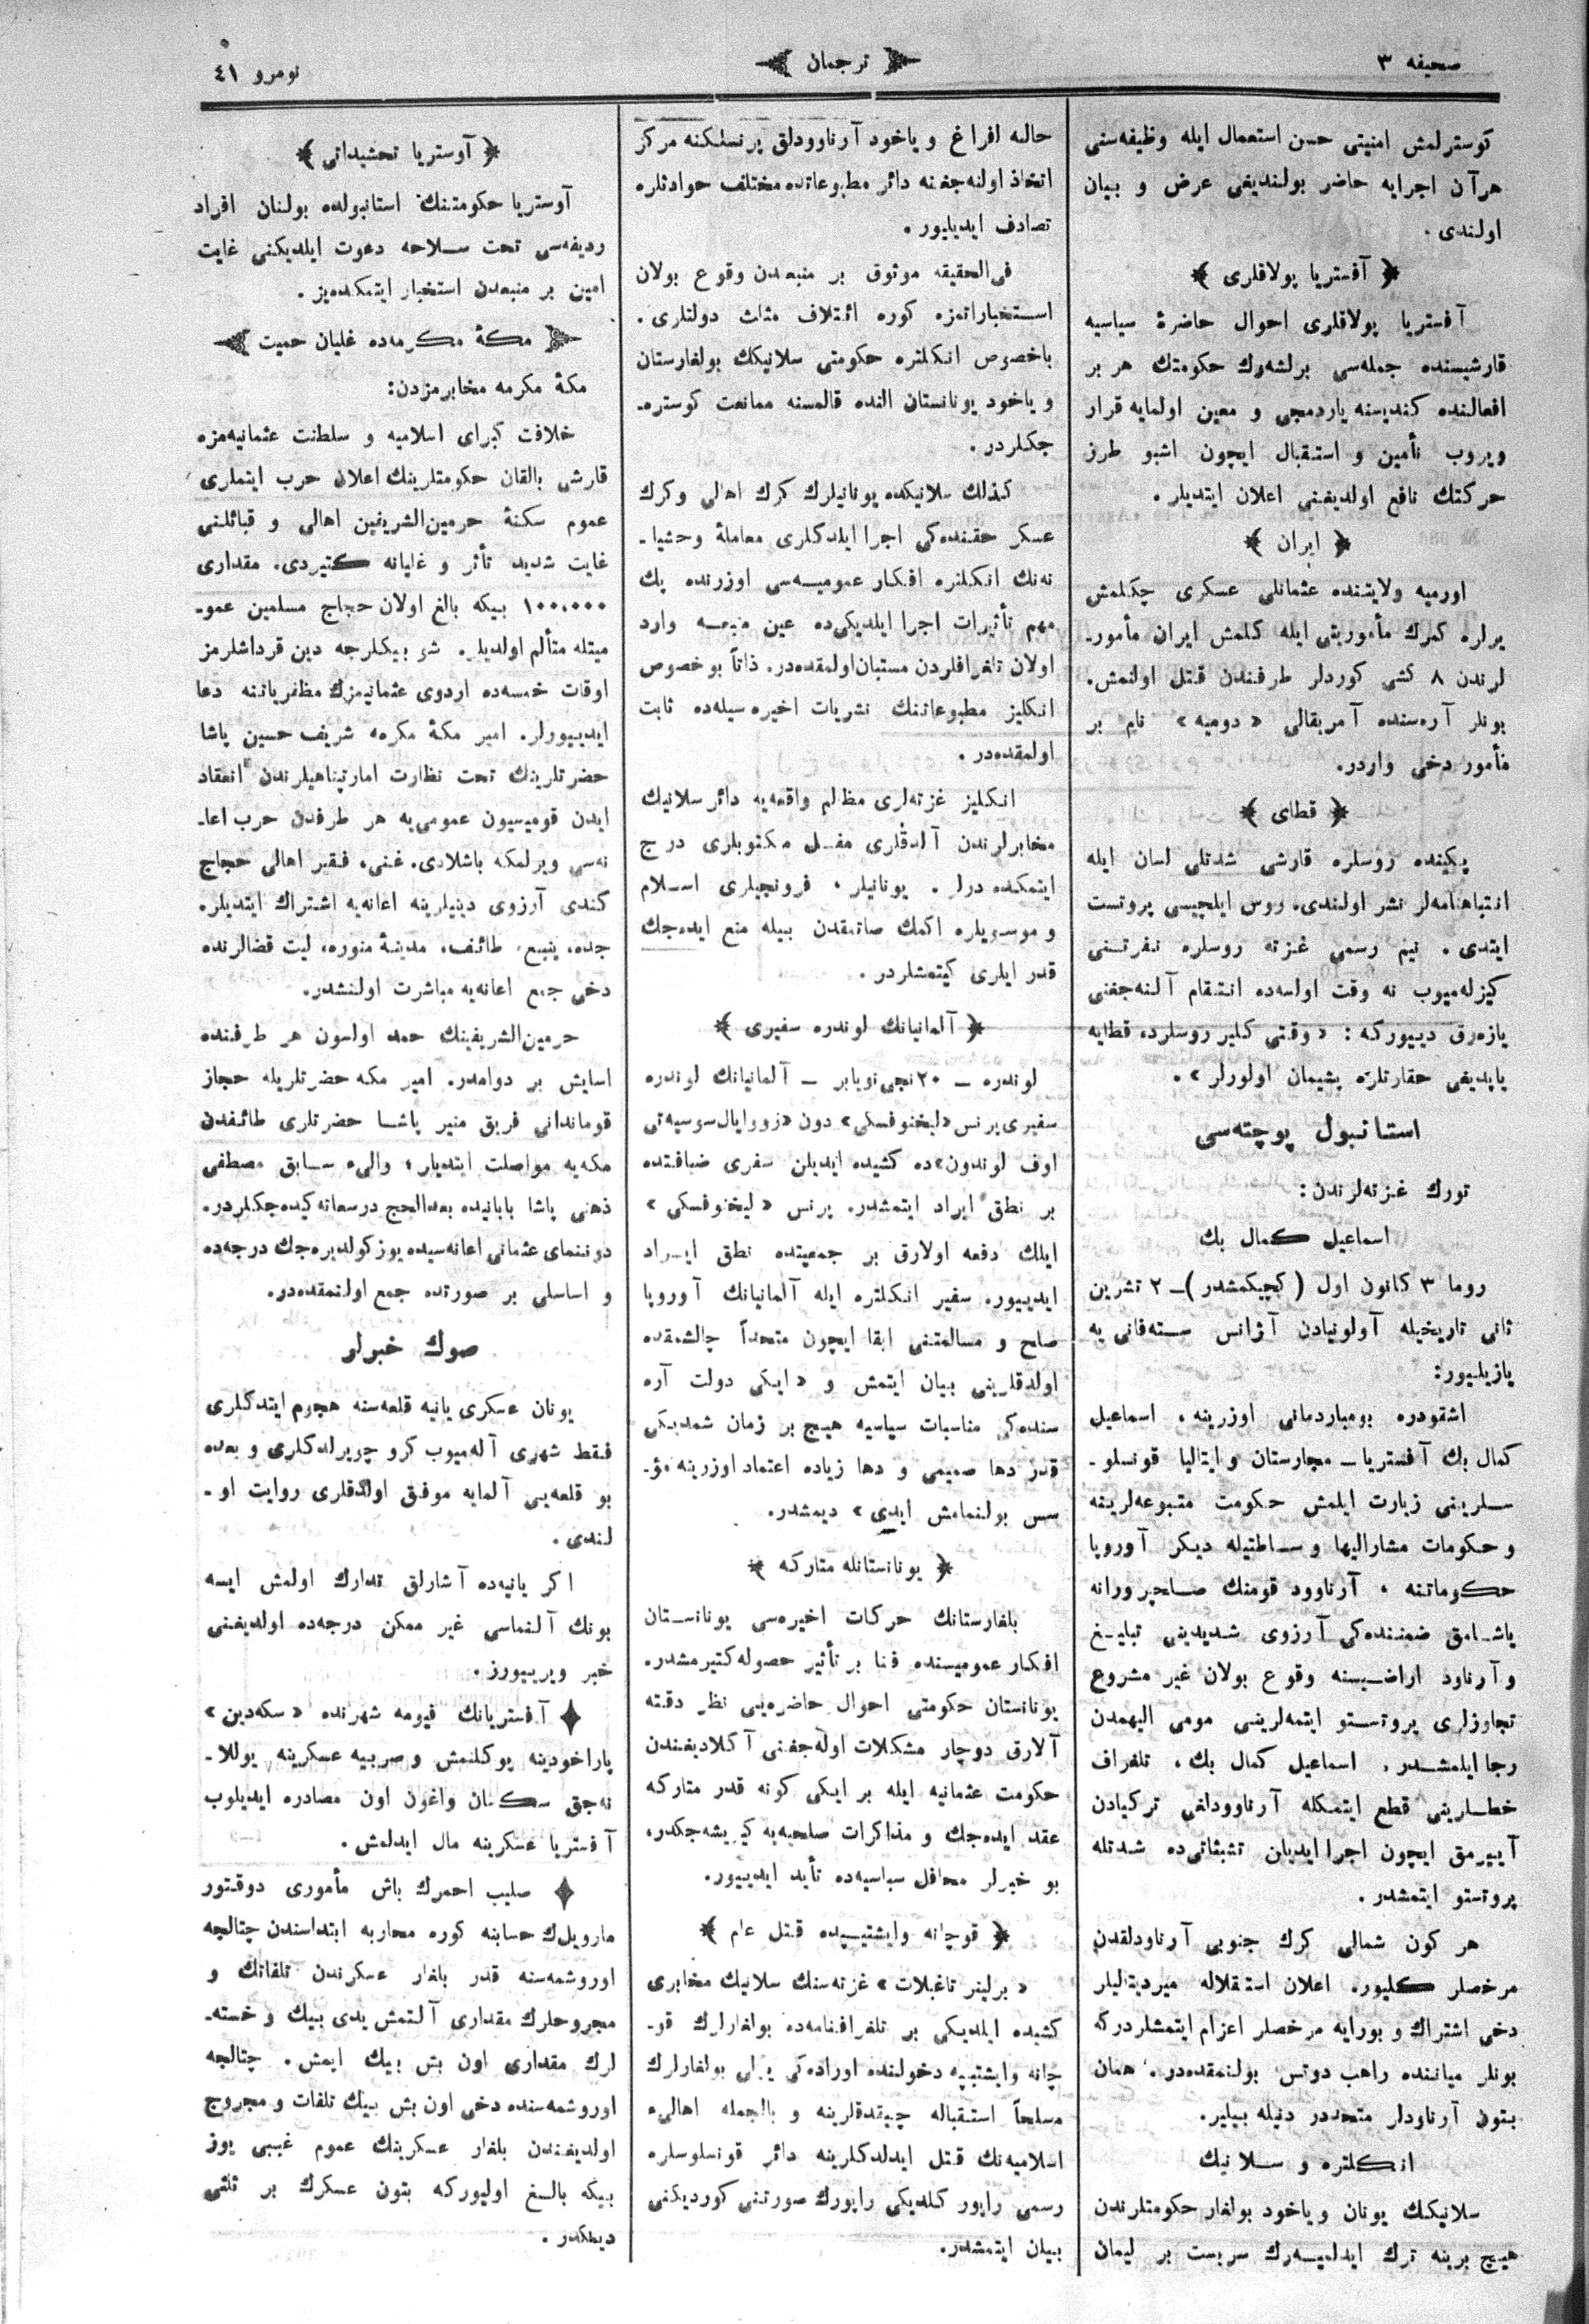 صحیفه ۳
ترجمان
نومرو ٤١
كوسترلمش امنیتی حسن استعمال ایله وظیفه‌سنی
هرآن اجرایه حاضر بولندیغی عرض و بیان
اولندی.
﴿ آفستریا پولاقلری ﴾
آفستریا پولاقلری احوال حاضرهٔ سیاسیه
قارشیسنده جمله‌سی برلشه‌رك حكومتك هر بر
افعالنده كندیسنه یاردمجی و معین اولمایه قرار
ویروب تأمین و استقبال ایچون اشبو طرز
حركتك نافع اولدیغنی اعلان ایتدیلر.
﴿ ایران ﴾
اورمیه ولایتنده عثمانلی عسكری چكلمش
یرلره كمرك مأموریتی ایله كلمش ایران مأمور-
لرندن ٨ كشی كوردلر طرفندن قتل اولنمش.
بونلر آره‌سنده آمریقالی «دومیه» نام بر
مأمور دخی واردر.
﴿ قطای ﴾
پكینده روسلره قارشی شدتلی لسان ایله
انتباهنامه‌لر نشر اولندی. روس ایلچیسی پروتست
ایتدی. نیم رسمی غزته روسلره نفرتنی
كیزله‌میوب نه وقت اولسه‌ده انتقام آلنه‌جغنی
یازه‌رق دیییوركه: «وقتی كلیر روسلرده قطایه
یاپدیغی حقارتلره پشیمان اولورلر».
استانبول پوچته‌سی
تورك غزته‌لرندن:
اسماعیل كمال بك
روما ٣ كانون اول (كچیكمشدر)ـ ٢ تشرین
ثانی تاریخیله آولونیادن آژانس سته‌فانی یه
یازیلیور:
اشقودره بومباردمانی اوزرینه، اسماعیل
كمال بك آفستریا ـ مجارستان و ایتالیا قونسلو-
سلرینی زیارت ایلمش حكومت متبوعه‌لرینه
و حكومات مشارالیها وساطتیله دیكر آوروپا
حكوماتنه، آرناوود قومنك صلحپرورانه
یاشامق ضمننده‌كی آرزوی شدیدینی تبلیغ
و آرناود اراضیسنه وقوع بولان غیر مشروع
تجاوزلری پروتستو ایتمه‌لرینی مومی الیهمدن
رجا ایلمشدر. اسماعیل كمال بك، تلغراف
خطلرینی قطع ایتمكله آرناوودلغی تركیادن
آییرمق ایچون اجرا ایدیلن تشبثاتی‌ده شدتله
پروتستو ایتمشدر.
هر كون شمالی كرك جنوبی آرناودلقدن
مرخصلر كلیور. اعلان استقلاله میردیتالیلر
دخی اشتراك و بورایه مرخصلر اعزام ایتمشلردركه
بونلر میاننده راهب دوتس بولنمقده‌در. همان
بتون آرناودلر متحددر دنیله بیلیر.
انكلتره و سلانیك
سلانیكك یونان و یاخود بولغار حكومتلرندن
هیچ برینه ترك ایدلمیه‌رك سربست بر لیمان
حاله افراغ و یاخود آرناوودلق پرنسلكنه مركز
اتخاذ اولنه‌جغنه دائر مطبوعاتده مختلف حوادثلره
تصادف ایدیلیور.
فی‌الحقیقه موثوق بر منبعدن وقوع بولان
استخباراتمزه كوره ائتلاف مثلث دولتلری،
باخصوص انكلتره حكومتی سلانیكك بولغارستان
و یاخود یونانستان النده قالمسنه ممانعت كوستره-
جكلردر.
كذلك سلانیكده یونانیلرك كرك اهالی وكرك
عسكر حقنده‌كی اجرا ایلدكلری معاملهٔ وحشیا-
نه‌نك انكلتره افكار عمومیه‌سی اوزرنده پك
مهم تأثیرات اجرا ایلدیكی‌ده عین منبعه وارد
اولان تلغرافلردن مستبان‌اولمقده‌در. ذاتاً بو خصوص
انكلیز مطبوعاتنك نشریات اخیره‌سیله‌ده ثابت
اولمقده‌در.
انكلیز غزته‌لری مظالم واقعه‌یه دائر سلانیك
مخابرلرندن آلدقلری مفصل مكتوبلری درج
ایتمكده درلر. یونانیلر، فرونجیلری اسلام
و موسویلره اكمك صاتمقدن بیله منع ایده‌جك
قدر ایلری كیتمشلردر.
﴿ آلمانیانك لوندره سفیری ﴾
لوندره ـ ٢٠ نجی نویابر ـ آلمانیانك لوندره
سفیری پرنس «لیخنوفسكی» دون «زووایال سوسیه‌تی
اوف لوندون»ده كشیده ایدیلن سفری ضیافتده
بر نطق ایراد ایتمشدر. پرنس «لیخنوفسكی»
ایلك دفعه اولارق بر جمعیتده نطق ایراد
ایدییور. سفیر انكلتره ایله آلمانیانك آوروپا
صلح و مسالمتنی ابقا ایچون متحداً چالشمقده
اولدقلرینی بیان ایتمش و «ایكی دولت آره
سنده‌كی مناسبات سیاسیه هیچ بر زمان شمدیكی
قدر دها صمیمی و دها زیاده اعتماد اوزرینه مؤ-
سس بولنمامش ایدی» دیمشدر.
﴿ یونانستانله متاركه ﴾
بلغارستانك حركات اخیره‌سی یونانستان
افكار عمومیسنده فنا بر تأثیر حصوله كتیرمشدر.
یونانستان حكومتی احوال حاضره‌یی نظر دقته
آلارق دوچار مشكلات اوله‌جغنی آكلادیغندن
حكومت عثمانیه ایله بر ایكی كونه قدر متاركه
عقد ایده‌جك و مذاكرات صلحیه‌یه كیریشه‌جكدر،
بو خبرلر محافل سیاسیه‌ده تأیید ایدییور.
﴿ قوچانه و ایشتیپده قتل عام ﴾
«برلینر تاغبلات» غزته‌سنك سلانیك مخابری
كشیده ایلدیكی بر تلغرافنامه‌ده بولغارلرك قو-
چانه و ایشتیپه دخولنده اوراده‌كی یرلی بولغارلرك
مسلحاً استقباله چیقدقلرینه و بالجمله اهالیء
اسلامیه‌نك قتل ایدلدكلرینه دائر قونسلوسلره
رسمی راپور كلدیكی راپورك صورتنی كوردیكنی
بیان ایتمشدر.
﴿ آوستریا تحشیداتی ﴾
آوستریا حكومتنك استانبولده بولنان افراد
ردیفه‌سی تحت سلاحه دعوت ایلدیكنی غایت
امین بر منبعدن استخبار ایتمكده‌یز.
مكهٔ مكرمه‌ده غلیان حمیت
مكهٔ مكرمه مخابرمزدن:
خلافت كبرای اسلامیه و سلطنت عثمانیه‌مزه
قارشی بالقان حكومتلرینك اعلان حرب ایتملری
عموم سكنهٔ حرمین‌الشریفین اهالی و قبائلنی
غایت شدید تأثر و غلیانه كتیردی. مقداری
١٠٠،٠٠٠ بیكه بالغ اولان حجاج مسلمین عمو-
میتله متألم اولدیلر. شو بیكلرجه دین قرداشلرمز
اوقات خمسه‌ده اردوی عثمانیمزك مظفریاتنه دعا
ایدییورلر. امیر مكهٔ مكرمه شریف حسین پاشا
حضرتلرینك تحت نظارت امارتپناهیلرندن انعقاد
ایدن قومیسیون عمومی‌یه هر طرفدن حرب اعا-
نه‌سی ویرلمكه باشلادی. غنی، فقیر اهالی حجاج
كندی آرزوی دینیلرینه اعانه‌یه اشتراك ایتدیلر.
جده، ینبع، طائف، مدینهٔ منوره، لیت قضالرنده
دخی جمع اعانه‌یه مباشرت اولنشدر.
حرمین‌الشریفینك حمد اولسون هر طرفنده
اسایش بر دوامدر. امیر مكه حضرتلریله حجاز
قوماندانی فریق منیر پاشا حضرتلری طائفدن
مكه‌یه مواصلت ایتدیلر؛ والیء سابق مصطفی
ذهنی پاشا بابانیده بعدالحج درسعاته كیده‌جكلردر.
دوننمای عثمانی اعانه‌سیده یوز كولدیره‌جك درجه‌ده
و اساسلی بر صورتده جمع اولنمقده‌در.
صوك خبرلر
یونان عسكری یانیه قلعه‌سنه هجوم ایتدكلری
فقط شهری آله‌میوب كرو چویرلدكلری و بعده
بو قلعه‌یی آلمایه موفق اولدقلری روایت او-
لندی.
اكر یانیه‌ده آشارلق تدارك اولمش ایسه
بونك آلنماسی غیر ممكن درجه‌ده اولدیغنی
خبر ویرییورز.
آفستریانك فیومه شهرنده «سكه‌دین»
پاراخودینه یوكلنمش و صربیه عسكرینه یوللا-
نه‌جق سكسان واغون اون مصادره ایدیلوب
آفستریا عسكرینه مال ایدلمش.
صلیب احمرك باش مأموری دوقتور
مارویل‌ك حسابنه كوره محاربه ابتداسندن چتالجه
اوروشمه‌سنه قدر بلغار عسكرندن تلفاتك و
مجروحلرك مقداری آلتمش یدی بیك و خسته-
لرك مقداری اون بش بیك ایمش. چتالجه
اوروشمه‌سنده دخی اون بش بیك تلفات و مجروح
اولدیغندن بلغار عسكرینك عموم غیبی یوز
بیكه بالغ اولیوركه بتون عسكرك بر ثلثی
دیمكدر.